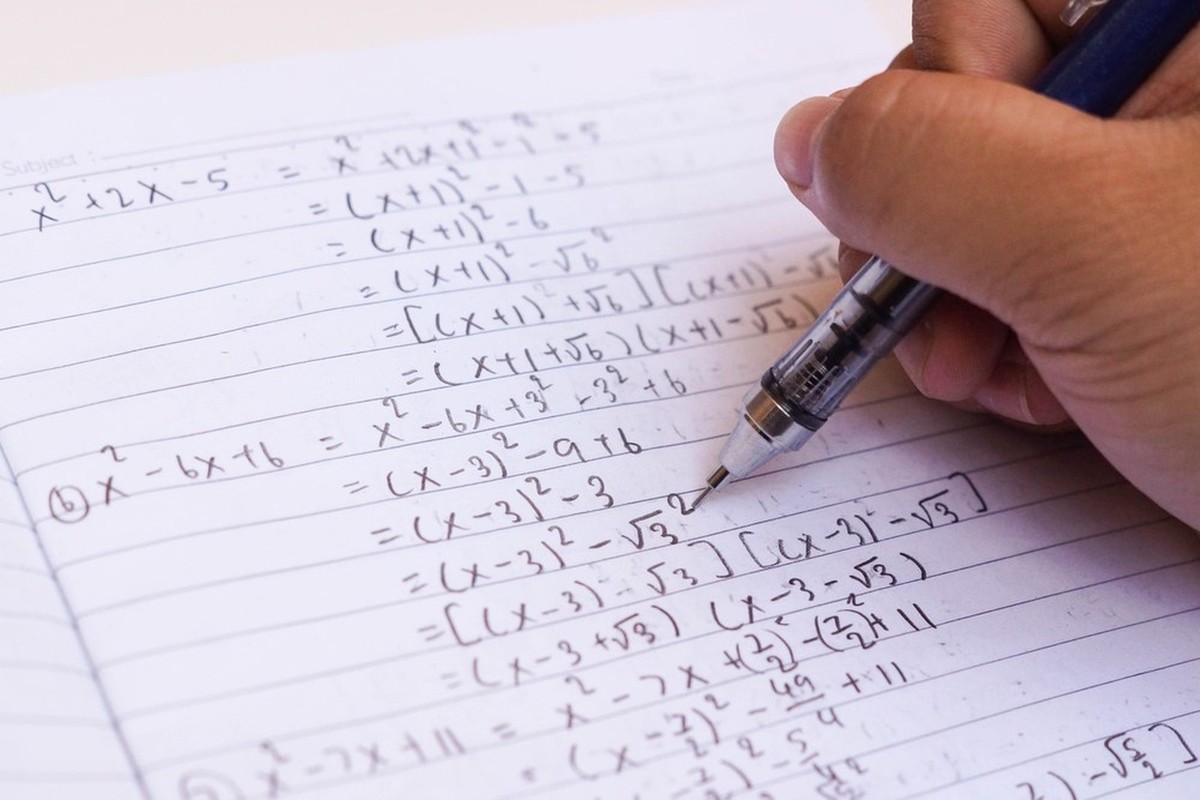 Subject :
x² + 2x - 5 = x² + 2x + 1² - 1² - 5
= (x+1)² - 1 - 5
= (x+1)² - 6
= (x+1)² - √6²
= [(x+1)² + √6] [(x+1)² - √6
= (x+1+√6) (x+1-√6)
ⓑ x² - 6x + 6 = x² - 6x + 3² - 3² + 6
= (x-3)² - 9 + 6
= (x-3)² - 3
= (x-3)² - √3²
= [(x-3) - √3] [(x-3) - √3]
= (x-3+√3) (x-3-√3)
x² - 7x + 11 = x² - 7x + (7/2)² - (7/2)² + 11
= (x - 7/2)² - 49/4 + 11
7/2)² - 5/4
2) - √5/2]